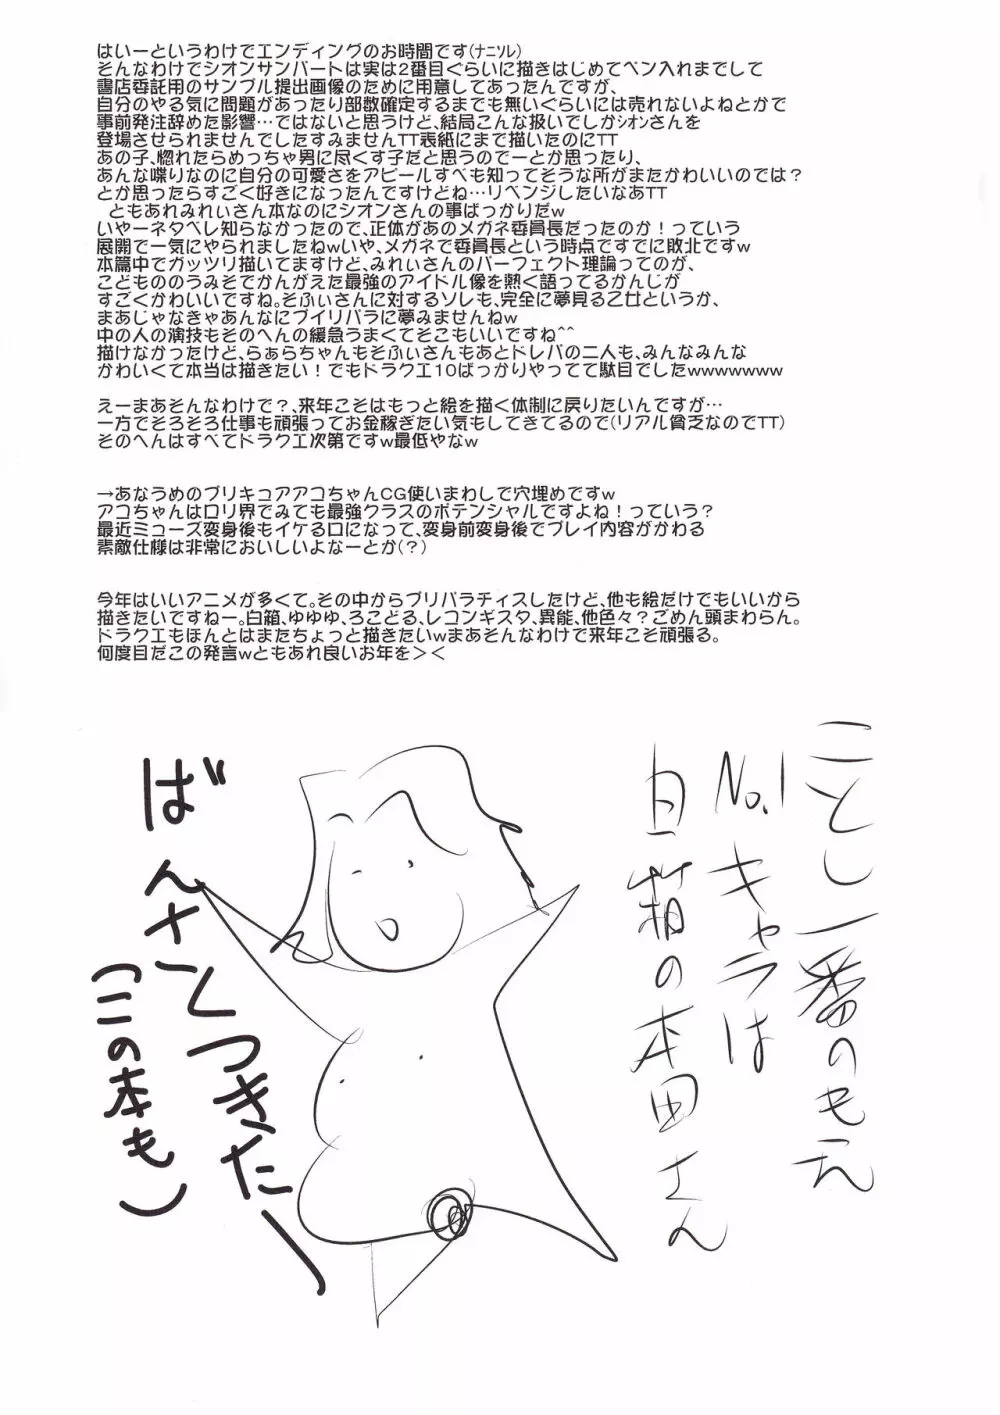 はいーというわけでエンディングのお時間です(ナニソレ)
そんなわけでシオンサンパートは実は2番目ぐらいに描きはじめてペン入れまでして
書店委託用のサンプル提出画像のために用意してあったんですが、
自分のやる気に問題があったり部数確定するまでも無いぐらいには売れないよねとかで
事前発注辞めた影響…ではないと思うけど、結局こんな扱いでしかシオンさんを
登場させられませんでしたすみませんTT表紙にまで描いたのにTT
あの子、惚れたらめっちゃ男に尽くす子だと思うのでーとか思ったり、
あんな喋りなのに自分の可愛さをアピールすべも知ってそうな所がまたかわいいのでは？
とか思ったらすごく好きになったんですけどね…リベンジしたいなあTT
ともあれみれぃさん本なのにシオンさんの事ばっかりだw
いやーネタベレ知らなかったので、正体があのメガネ委員長だったのか！っていう
展開で一気にやられましたねwいや、メガネで委員長という時点ですでに敗北ですw
本篇中でガッツリ描いてますけど、みれぃさんのパーフェクト理論ってのが、
こどもののうみそでかんがえた最強のアイドル像を熱く語ってるかんじが
すごくかわいいですね。そふぃさんに対するソレも、完全に夢見る乙女というか、
まあじゃなきゃあんなにプイリパラに夢みませんねw
中の人の演技もそのへんの緩急うまくてそこもいいですね^^
描けなかったけど、らぁらちゃんもそふぃさんもあとドレパの二人も、みんなみんな
かわいくて本当は描きたい！でもドラクエ10ばっかりやってて駄目でしたwwwwwww
えーまあそんなわけで？、来年こそはもっと絵を描く体制に戻りたいんですが…
一方でそろそろ仕事も頑張ってお金稼ぎたい気もしてきてるので(リアル貧乏なのでTT)
そのへんはすべてドラクエ次第ですw最低やなw
今年はいいアニメが多くて。その中からプリパラチョイスしたけど、他も絵だけでもいいから
描きたいですねー。白箱、ゆゆゆ、ろこどる、レコンギスタ、異能、他色々？ごめん頭まわらん。
ドラクエもほんとはまたちょっと描きたいwまあそんなわけで来年こそ頑張る。
何度目だこの発言wともあれ良いお年を＞＜
ことし一番のもえ
No.1キャラは
白箱の本田さん
ばんさくつきたー
(この本も)